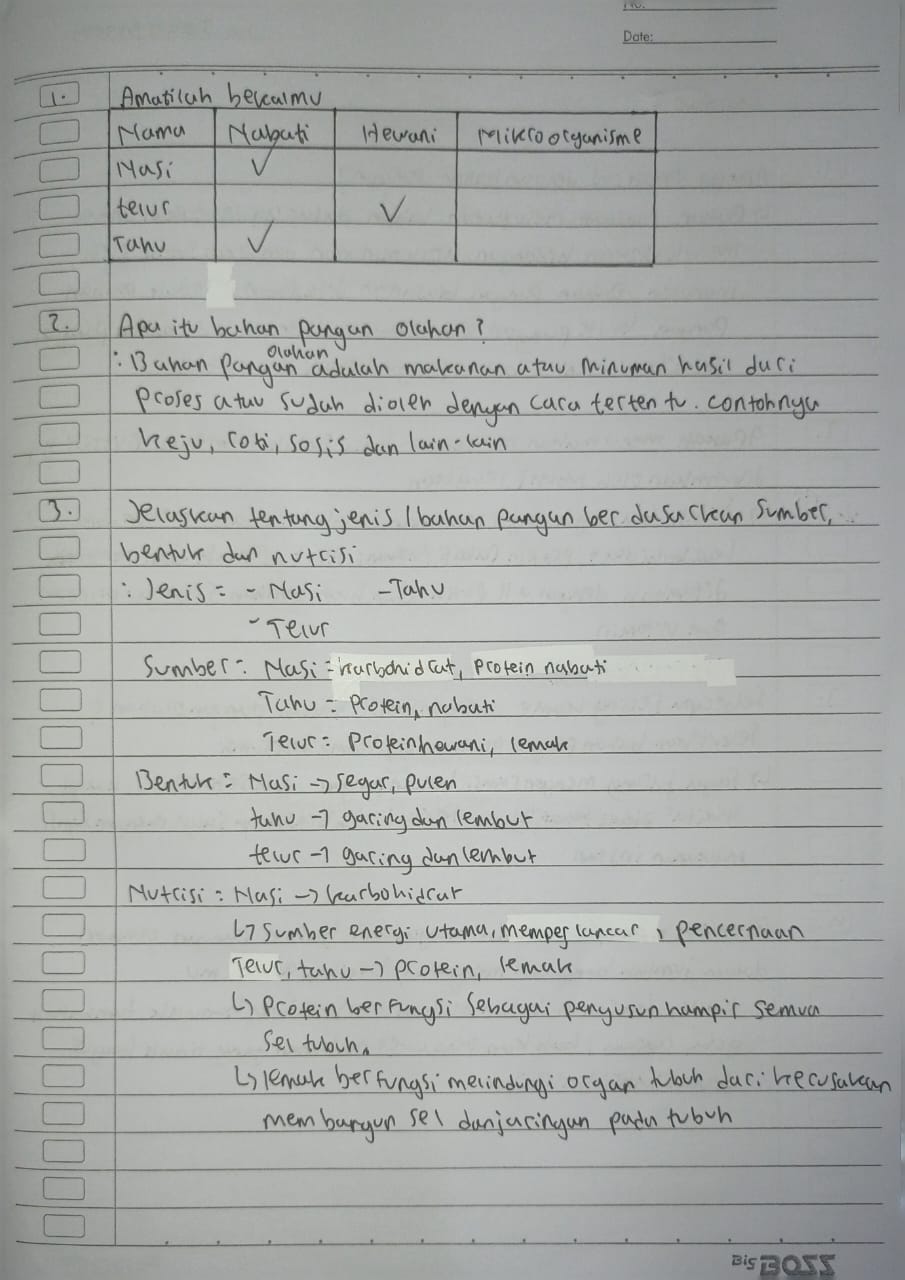 No.
Date:
1. Amatilah bekalmu
Nama Nabati Hewani Mikroorganisme
Nasi ✓
telur ✓
Tahu ✓
2. Apa itu bahan pangan olahan?
olahan
: Bahan pangan adalah makanan atau minuman hasil dari
proses atau sudah dioleh dengan cara tertentu. contohnya
keju, roti, sosis dan lain-lain
3. Jelaskan tentang jenis / bahan pangan berdasarkan sumber,
bentuk dan nutrisi
: Jenis = - Nasi - Tahu
- Telur
Sumber = Nasi = karbohidrat, protein nabati
Tahu = protein, nabati
Telur = Protein hewani, lemak
Bentuk = Nasi → segar, pulen
tahu → garing dan lembut
telur → garing dan lembut
Nutrisi = Nasi → karbohidrat
↳ sumber energi utama, memperlancar, pencernaan
Telur, tahu → protein, lemak
↳ Protein berfungsi sebagai penyusun hampir semua
sel tubuh.
↳ lemak berfungsi melindungi organ tubuh dari kerusakan
membangun sel dan jaringan pada tubuh
Big BOSS